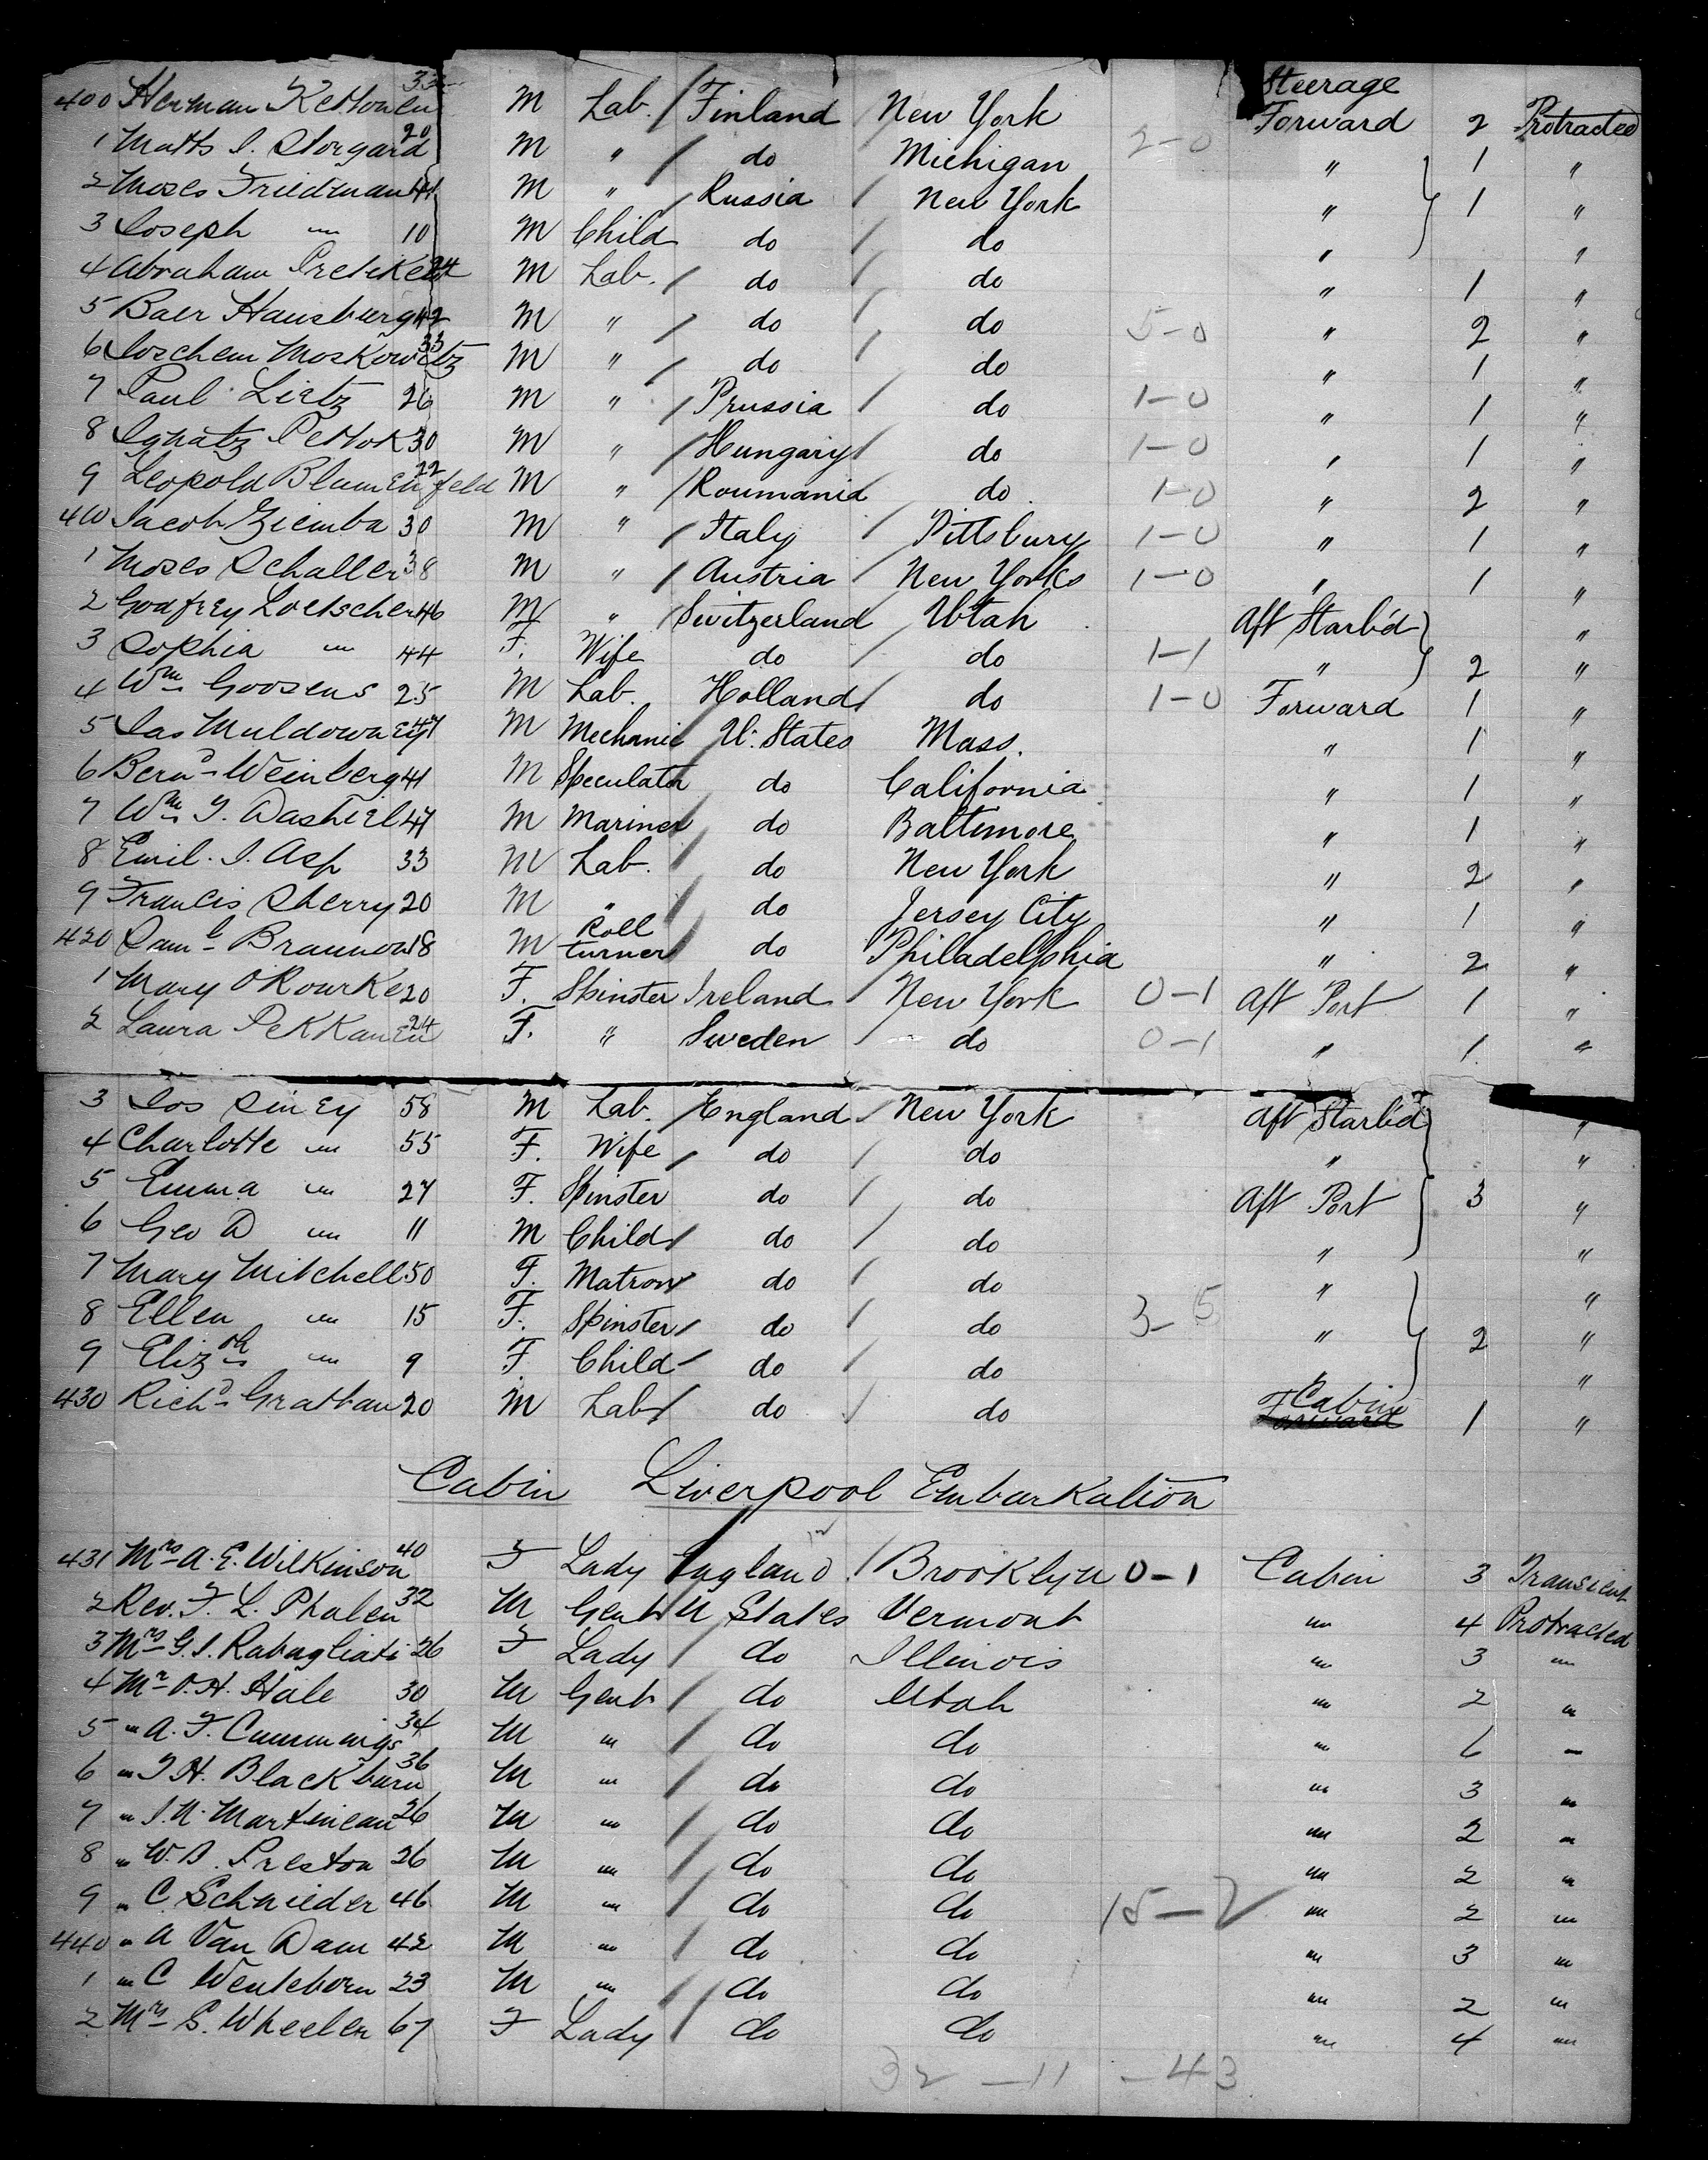 Steerage
400 Herman Kettonen 33 M Lab. Finland New York Forward 2 Protracted
1 Matts I. Storgard 20 M " do Michigan 2-0 " 1 "
2 Moses Friedman 41 M " Russia New York " 1 "
3 Joseph " 10 M Child do do " "
4 Abraham 24 M Lab. do do " 1 "
5 Baer Hansburg 42 M " do do 5-0 " 2 "
6 Joschem Moskowitz 33 M " do do " 1 "
7 Paul Lietz 26 M " Prussia do 1-0 " 1 "
8 Ignatz Pettok 30 M " Hungary do 1-0 " 1 "
9 Leopold Blumenfeld 22 M " Roumania do 1-0 " 2 "
410 Jacob Ziemba 30 M " Italy Pittsburg 1-0 " 1 "
1 Moses Schaller 38 M " Austria New York 1-0 " 1 "
2 Godfrey Loetscher 46 M " Switzerland Utah Aft Starb'd "
3 Sophia " 44 F. Wife do do 1-1 " 2 "
4 Wm Goosens 25 M Lab. Holland do 1-0 Forward 1 "
5 Jas Muldowney 47 M Mechanic U. States Mass. " 1 "
6 Bernd Weinberg 41 M Speculator do California " 1 "
7 Wm T. Dashiel 47 M Mariner do Baltimore " 1 "
8 Emil. I. Asp 33 M Lab. do New York " 2 "
9 Francis Sherry 20 M " do Jersey City " 1 "
420 Saml Braunon 18 M Roll turner do Philadelphia " 2 "
1 Mary O'Rourke 20 F. Spinster Ireland New York 0-1 Aft Port 1 "
2 Laura Pekkanen 24 F. " Sweden do 0-1 " 1 "
3 Jos Siney 58 M Lab. England New York Aft Starb'd "
4 Charlotte " 55 F. Wife do do " "
5 Emma " 27 F. Spinster do do Aft Port 3 "
6 Geo D " 11 M Child do do " "
7 Mary Mitchell 50 F. Matron do do " "
8 Ellen " 15 F. Spinster do do 3-5 " 2 "
9 Elizth " 9 F. Child do do " "
430 Richd Grattan 20 M Lab do do Cabin Forward 1 "
Cabin Liverpool Embarkation
431 Mrs A. E. Wilkinson 40 F Lady England Brooklyn 0-1 Cabin 3 Transient
2 Rev. F. L. Phalen 32 M Gent U States Vermont " 4 Protracted
3 Mrs G. I. Rabagliati 26 F Lady do Illinois " 3 "
4 Mr O. H. Hale 30 M Gent do Utah " 2 "
5 " A. F. Cummings 34 M " do do " 6 "
6 " T H. Blackburn 36 M " do do " 3 "
7 " J. N. Martineau 26 M " do do " 2 "
8 " W. B. Preston 26 M " do do " 2 "
9 " C. Schnieder 46 M " do do 15-2 " 2 "
440 " A Van Dam 42 M " do do " 3 "
1 " C Wenteborn 23 M " do do " 2 "
2 Mrs S. Wheeler 67 F Lady do do " 4 "
32 - 11 - 43